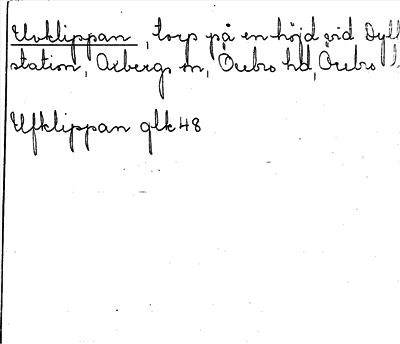 Uvklippan, torp på en höjd vid Dyl
station, Axbergs sn, Örebro hd, Örebro l.
Ufklippan glk 48